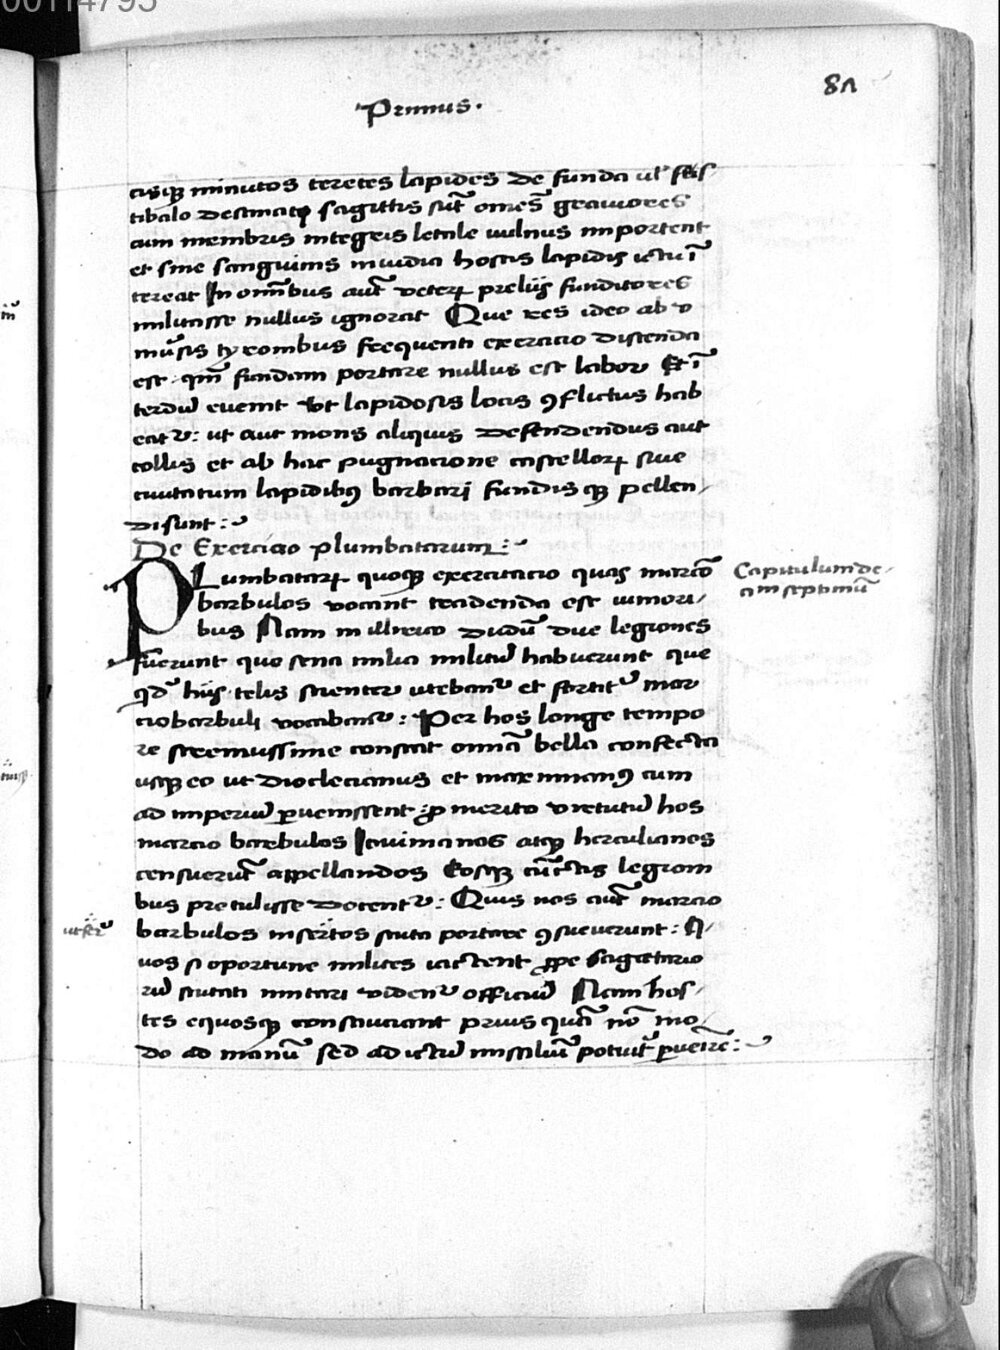 00114795
Primus.
81
cisq₃ minutos teretes lapides de funda ul' fus
tibalo destinatos sagittis sūt omēs grauiores
cum membris integris letale uulnus importent
et sine sanguinis inuidia hostis lapidis ictu ī
tereat In omībus aūt veteꝝ preliis funditores
militasse nullus ignorat Que res ideo ab v
niūsis tyronibus frequenti exercicio discenda
est qm̄ fundam portare nullus est labor Et ī
terdū euenit vt lapidosis locis ꝯflictus hab
eatᷣ: ut aut mons aliquis defendendus aut
collis et ab hac pugnacione castelloꝝ siue
ciuitatum lapidibꝯ barbari fundisqꝫ pellen
di sunt:
De Exercicio plumbatarum:
PLumbataꝝ quoqꝫ exercitacio quas marcio
Capitulum de-
barbulos vocant tradenda est iunori
cim septimū
bus Nam in illirico dudū due legiones
fuerunt que sena milia militū habuerunt que
qd' hiis telis scienter utebanᷣ et fortitᷣ mar
ciobarbuli vocabanᷣ: Per hos longe tempo
re strenuissime constat omīa bella confecta
usqꝫ eo ut Dioclecianus et maximianꝯ cum
ad imperiū ꝑuenissent ꝓ merito virtutū hos
marcio barbulos Iouianos atqꝫ herculianos
censuerūt appellandos Eosqꝫ cūctis legioni
bus pretulisse docentᷣ: Quīs nos aūt marcio
barbulos insertos scuto portare ꝯsueuerunt: Q
uos si oportune milites iactent ꝓpe sagittario
rū scutati imitari videnᷣ officiū Nam hos
tes equosqꝫ consauciant prius quā nō mo
do ad manū sed ad ictū missiliū potuīt ꝑuenire: